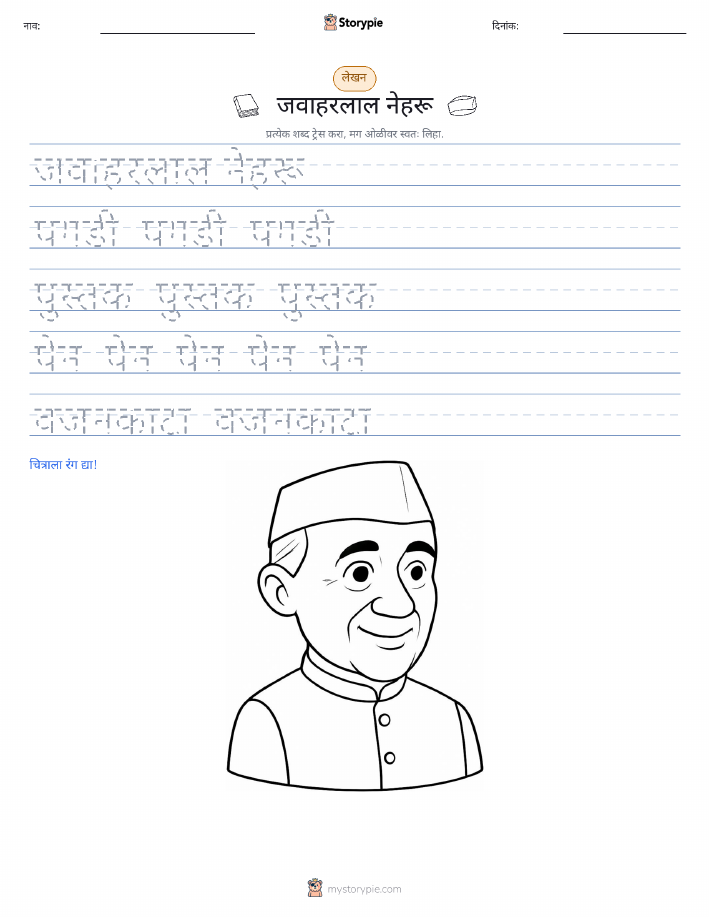 नाव:
Storypie
दिनांक:
लेखन
जवाहरलाल नेहरू
प्रत्येक शब्द ट्रेस करा, मग ओळीवर स्वतः लिहा.
जवाहरलाल नेहरू
पगडी पगडी पगडी
पुस्तक पुस्तक पुस्तक
पेन पेन पेन पेन पेन
वजनकाटा वजनकाटा
चित्राला रंग द्या!
mystorypie.com